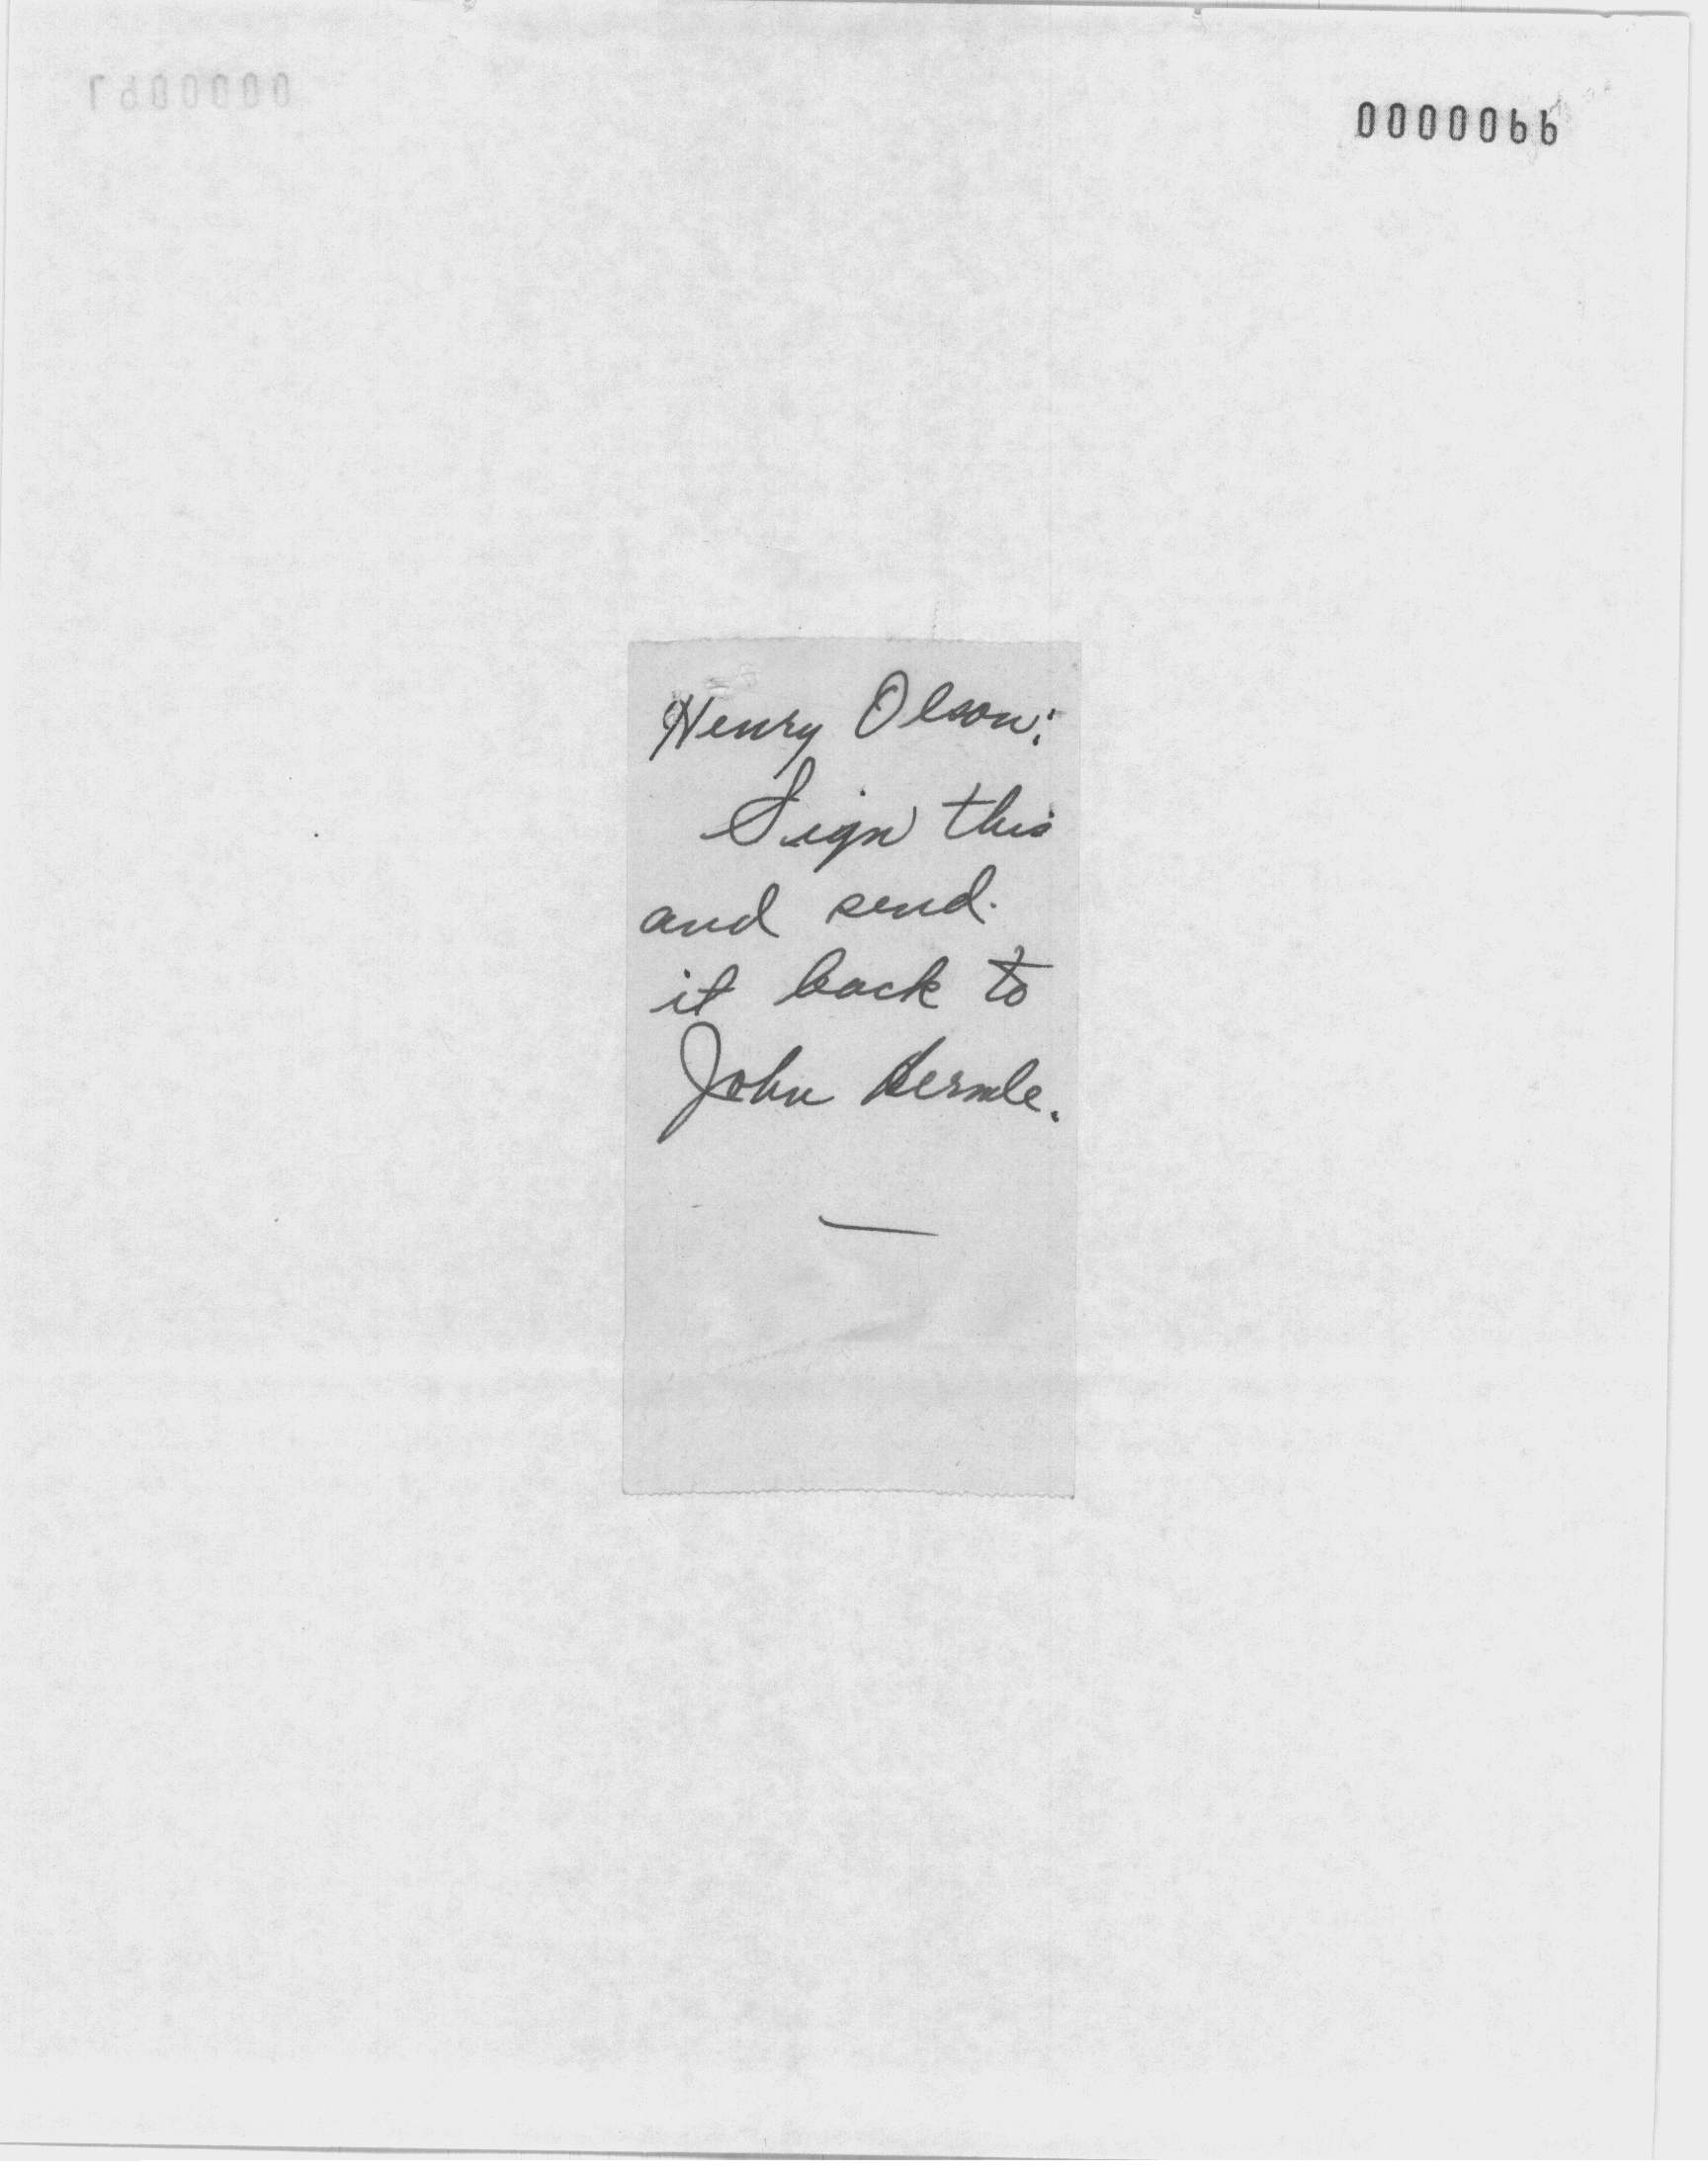 0000066
Henry Olson:
Sign this
and send
it back to
John